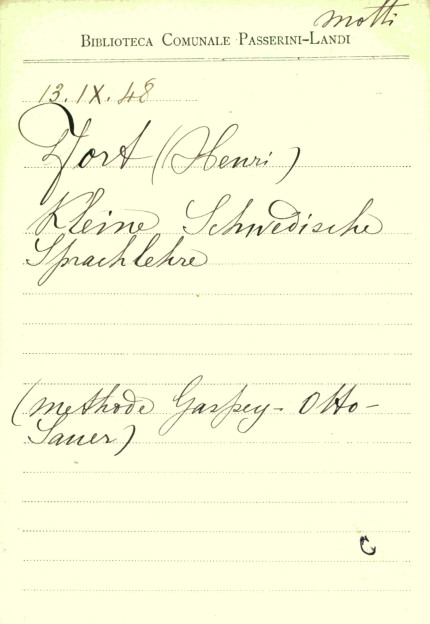 Motti
BIBLIOTECA COMUNALE PASSERINI-LANDI
13.IX.48
Fort (Henri)
Kleine Schwedische
Sprachlehre
(methode Gaspey - Otto -
Sauer)
C